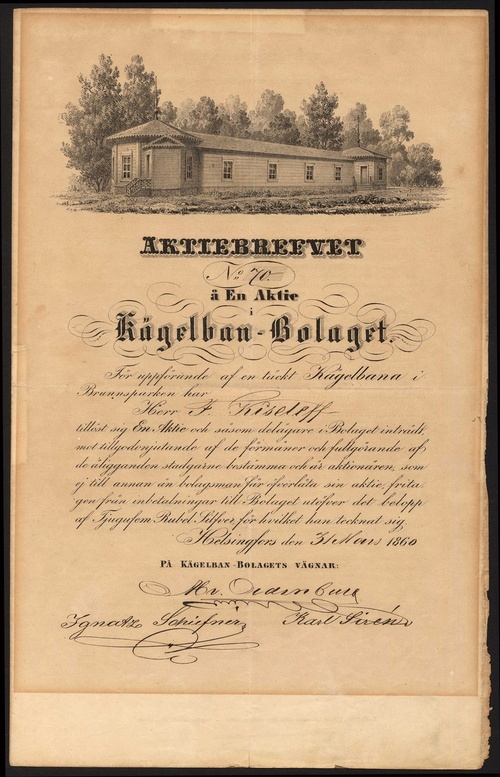 AKTIEBREFVET
No 70.
å En Aktie
i
Kägelban-Bolaget.
För uppförande af en täckt Kägelbana i
Brunnsparken har
Herr F Kiseleff
tillöst sig En Aktie och såsom delägare i Bolaget inträdt,
mot tillgodonjutande af de förmåner och fullgörande af
de åligganden stadgarne bestämma och är aktionären, som
ej till annan än bolagsman får öfverlåta sin aktie, frita
gen från inbetalningar till Bolaget utöfver det belopp
af Tjugufem Rubel Silfver, för hvilket han tecknat sig,
Helsingfors den 31 Mars 1860
PÅ KÄGELBAN-BOLAGETS VÄGNAR:
Ignatz Schiefner Karl Sirén